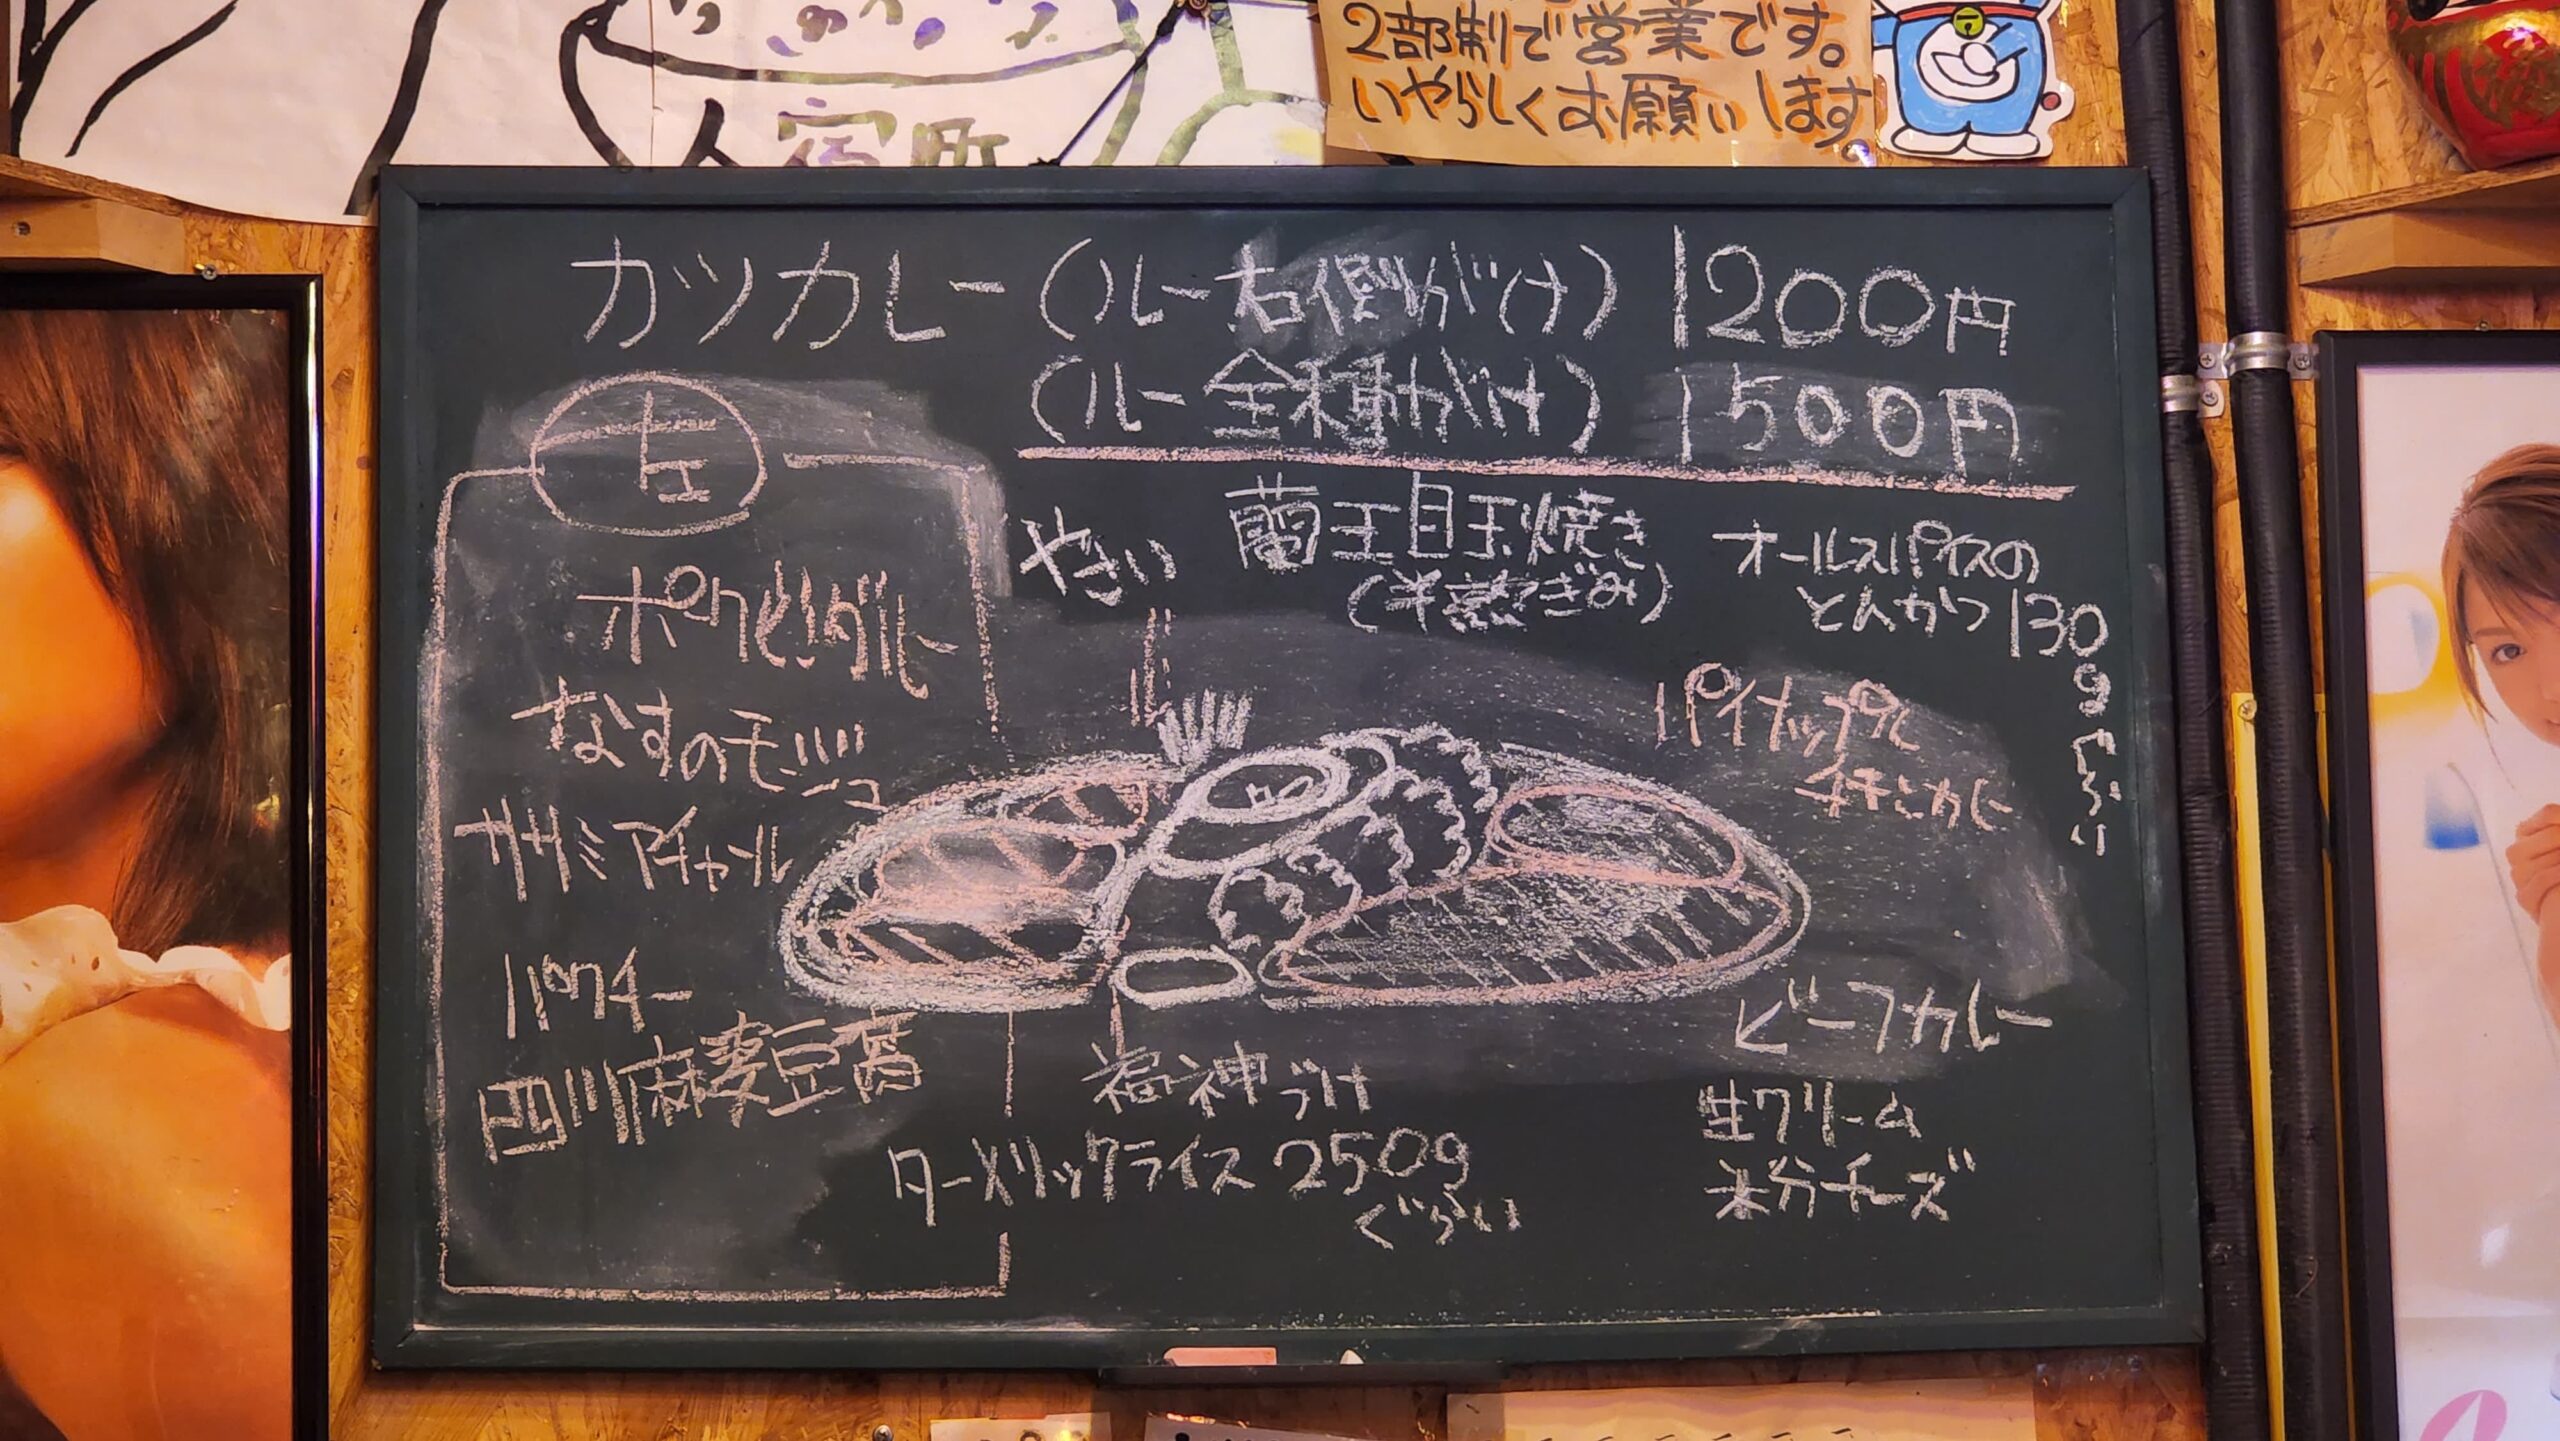 2部制で営業です。
いやらしくお願いします。
人宿町
カツカレー(ルー右側がけ) 1200円
(ルー全種がけ) 1500円
左
ポークビンダルー
なすのモージュ
ササミアチャール
パクチー
四川麻婆豆腐
やさい
蘭王目玉焼き
(半蒸ぎみ)
オールスパイスの
とんかつ130gぐらい
パイナップル
チキンカレー
ビーフカレー
生クリーム
粉チーズ
福神づけ
ターメリックライス 250g
ぐらい